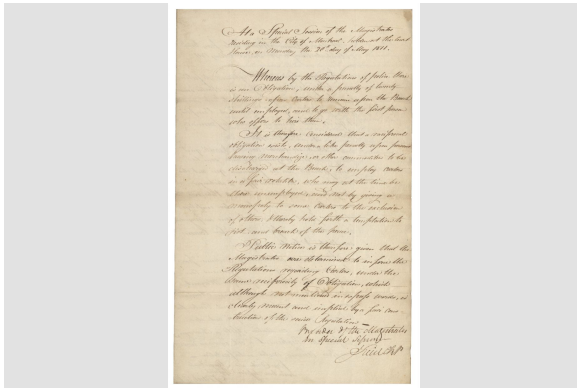 At a Special Session of the Magistrates
residing in the City of Montreal, holden at the Court
House, on Monday the 20th day of May 1811.
Whereas by the Regulation of Police there
is an Obligation, under a penalty of twenty
Shillings upon Carters to remain upon the Bench
until employed, and to go with the first person
who offers to hire them,
It is therefore considered that a reciprocal
obligation exists, under a like penalty upon persons
having merchandize, or other commodities to be
discharged at the Beach, to employ Carters
who may at the time be
there unemployed, and not by giving a
preference to some Carters to the exclusion
of others thereby hold forth a temptation to
and breach of the Law.
Public Notice is therefore given that the
Magistrates are determined to enforce the
Regulations regarding Carters, under the
above uniformity of Obligation, which
although not mentioned in express words, is
clearly meant and implied by a fair con-
struction of the said Regulation.
By order of the Magistrates
in Special Session